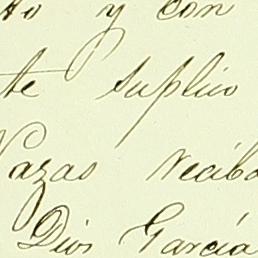 to y con
te suplico
Nazas reciba
Dios García